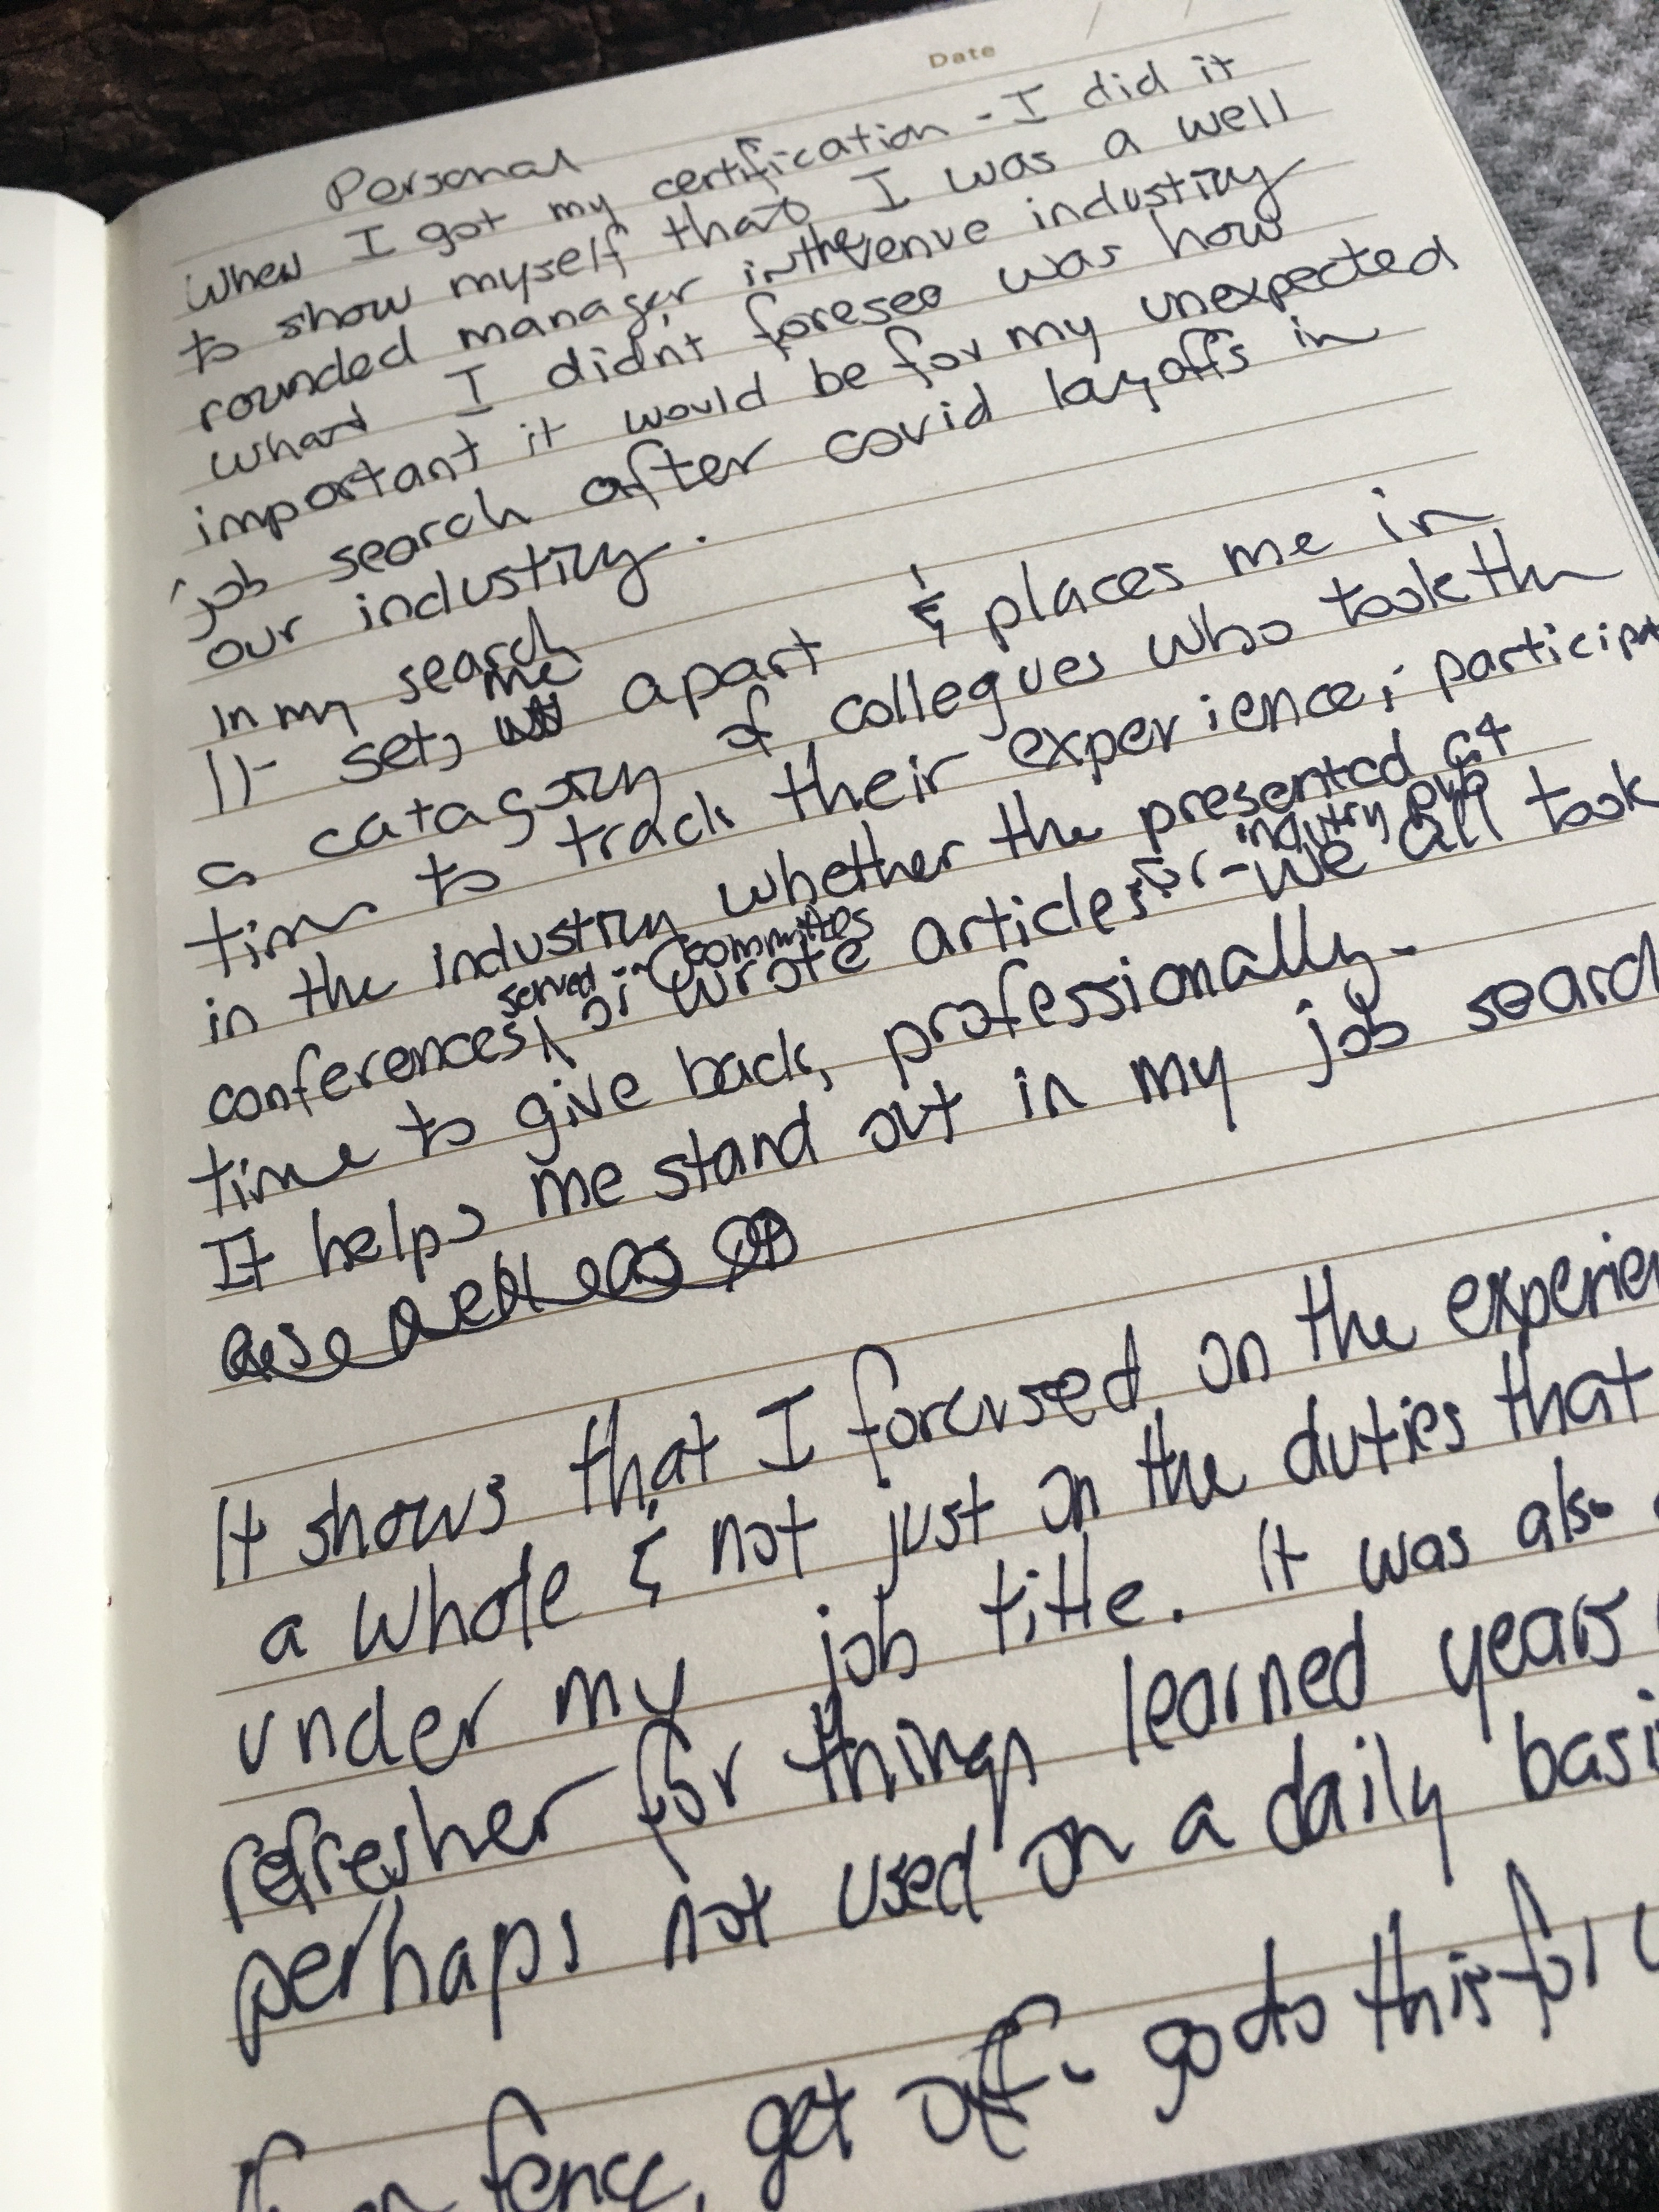 Date
Personal
When I got my certification - I did it
to show myself that I was a well
rounded manager in the venue industry
what I didn't foresee was how
important it would be for my unexpected
job search after covid layoffs in
our industry.
In my search
It sets me apart & places me in
a catagory of collegues who took the
time to track their experience, participat
in the industry whether the presented at
conferences, served on committes or wrote articles for industry pub - we all took
time to give back, professionally.
It helps me stand out in my job search
It shows that I forcused on the experien
a whole & not just on the duties that
under my job title. It was also
refresher for things learned years
perhaps not used on a daily basi
on fence, get off - go do this for